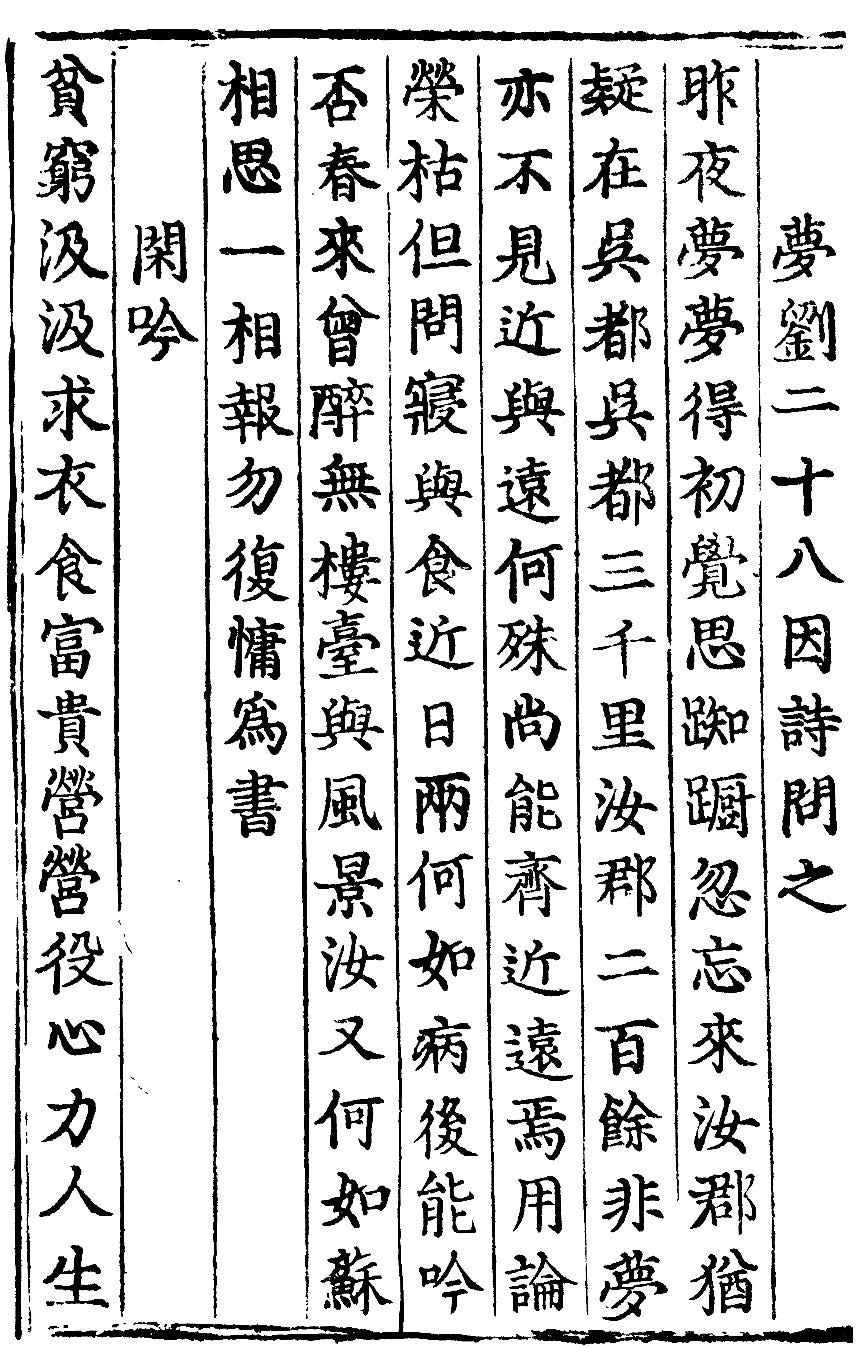 夢劉二十八因詩問之
昨夜夢夢得初覺思踟蹰忽忘來汝郡猶
疑在吳都吳都三千里汝郡二百餘非夢
亦不見近與遠何殊尚能齊近遠焉用論
榮枯但問寢與食近日兩何如病後能吟
否春來曾醉無樓臺與風景汝又何如蘇
相思一相報勿復慵爲書
閑吟
貧窮汲汲求衣食富貴營營役心力人生